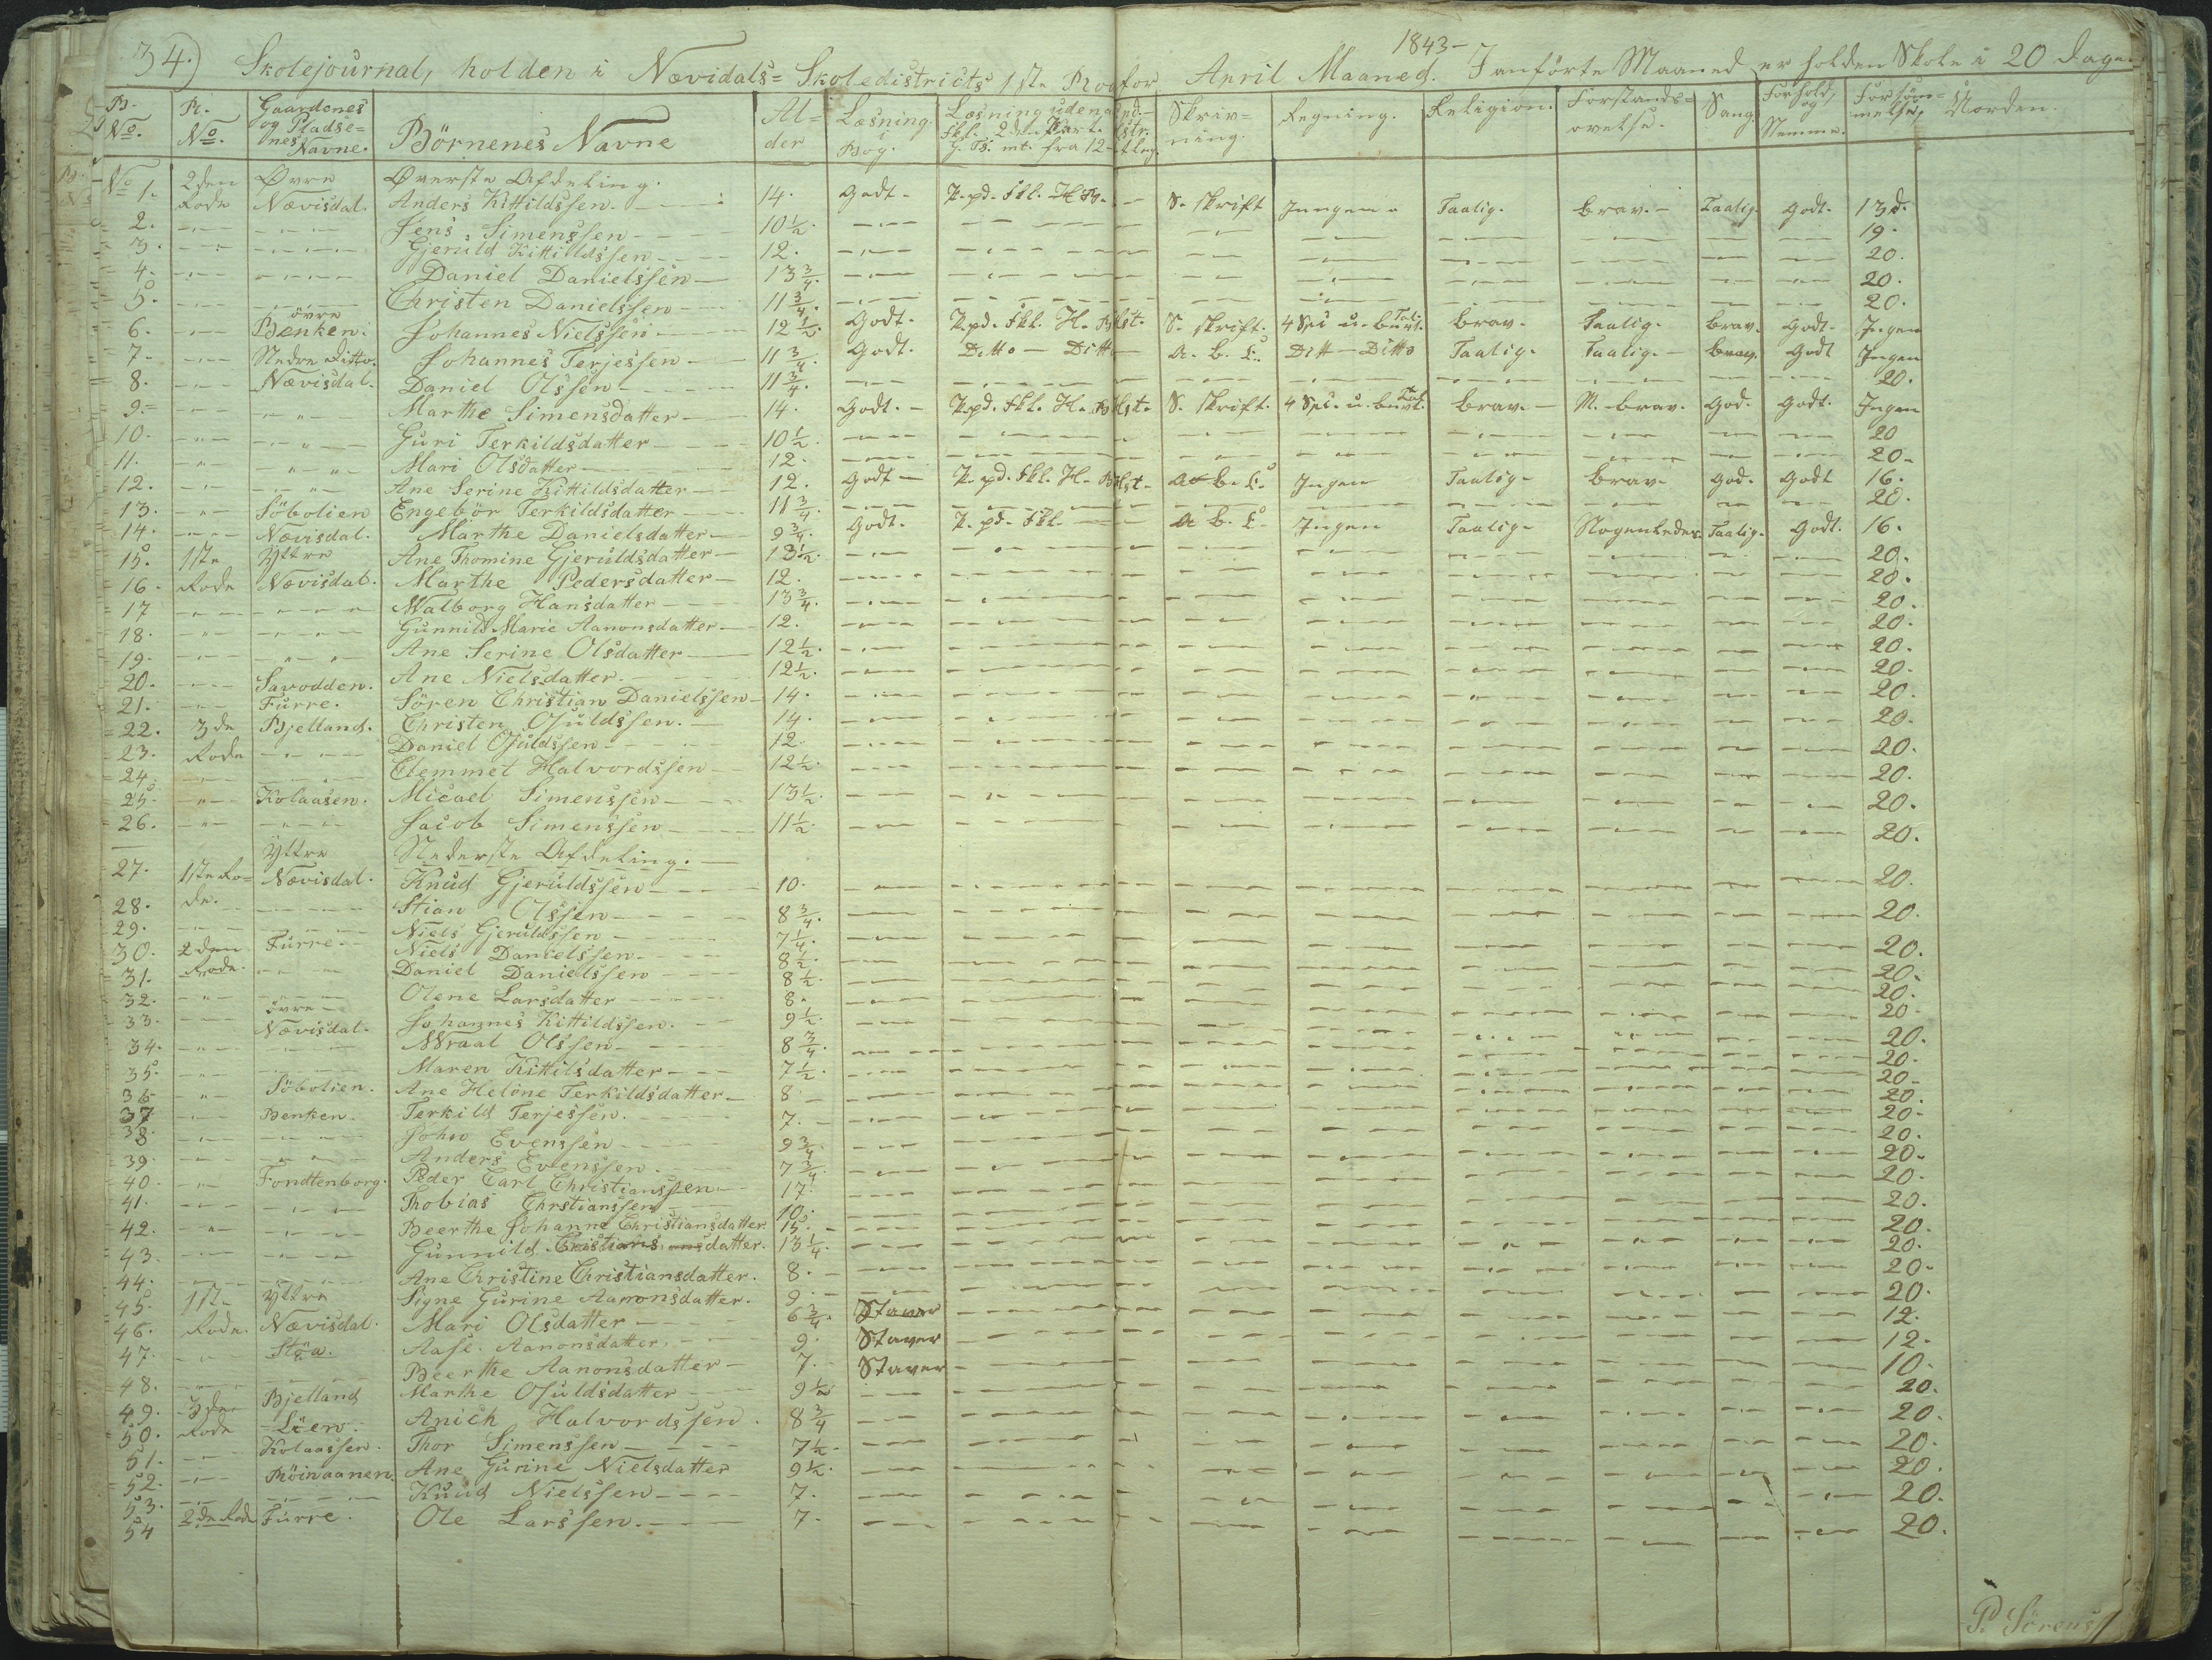 34.) Skolejournal, holden i Nævidals= Skoledistricts 1ste Ro for April Maaned. 1843- Janførte Maaned er holden Skole i 20 Dage.
B. No. R. No. Gaardenes og Pladse= nes Navne. Börnenes Navne Al= der Læsning i Bog. Læsning udenad Skriv= ning. Regning. Religion. Forstands= ovelse. Sang. Forhold, og Nemme. Forsöm= melse, Uorden.
Øverste Afdeling.
No 1. 2den Rode Øvre Nævisdal. Anders Kittildssen. 14. Godt - P. pd. Fkl. H. B. - S. skrift Jngen - Taalig. brav. - Taalig. Godt. 13d.
2. Jens, Simenssen 10½. 19.
3. Gjeruld Kittildssen 12. 20.
4. Daniel Danielssen 13¾. 20.
5. Christen Danielssen 11¾. 20.
6. övre Bænken: Johannes Nielssen 12½. Godt. P. pd. Fkl. H. Blst. S. skrift. 4 Spi u. b. Tal. brav. Taalig. brav. Godt. Jngen
7. Nedre Ditto. Johannes Terjessen 11¾. Godt. Ditto - Ditto A. b. c. Ditt - Ditto Taalig. Taalig. - brav. Godt Jngen
8. Nævisdal. Daniel Olssen 11¾. 20.
9. Marthe Simensdatter 14. Godt. - P. pd. Fkl. H. Blst. S. skrift. 4 Spi. u. b. Tal. brav. - M. brav. God. Godt. Jngen
10. Guri Terkildsdatter 10½. 20
11. Mari Olsdatter 12. 20.
12. Ane Serine Kittildsdatter 12. Godt - P. pd. Fkl. H. Blst. A. b. c. Jngen Taalig - brav. God. Godt 16.
13. Söbolien Engebör Terkildsdatter 11¾. 20.
14. Nævisdal. Marthe Danielsdatter 9¾. Godt. P. pd. Fkl. A. b. c. Jngen Taalig - Nogenledes Taalig. Godt. 16.
15. 1ste Yttre Ane Thomine Gjeruldsdatter 13½. 20.
16. Rode Nævisdal. Marthe Pedersdatter 12. 20.
17 Walborg Hansdatter 13¾. 20.
18. Gunnild Marie Aanonsdatter 12. 20.
19. Ane Serine Olsdatter 12½. 20.
20. Savodden. Ane Nielsdatter. 12½. 20.
21. Furre. Sören Christian Danielssen 14. 20.
22. 3de Bjelland. Christen Osuldssen. 14. 20.
23. Rode Daniel Osuldssen 12. 20.
24. Clemmet Halvordssen 12½. 20.
25. Kolaasen. Micael Simenssen 13½. 20.
26. Jacob Simenssen 11½. 20.
Nederste Afdeling.
27. 1ste Ro= de. Yttre Nævisdal. Knud Gjeruldssen 10. 20.
28. Stian Olssen 8¾. 20.
29. Niels Gjeruldssen 7¼. 20.
30. 2den Furre. Niels Danielssen 8½. 20.
31. Rode. Daniel Danielssen 8½. 20.
32. Olene Larsdatter 8. 20.
33. övre Nævisdal. Johannes Kittildssen. 9½. 20.
34. Wraal Olssen 8¾. 20.
35. Maren Kittilsdatter 7½. 20.
36 Söbolien. Ane Helöne Terkildsdatter 8. 20.
37 Benken. Terkild Terjessen. 7. 20.
38. John Evenssen 9¾. 20.
39. Anders Evenssen. 7¾. 20.
40. Fondtenborg. Peder Carl Christianssen 17. 20.
41. Thobias Chrstianssen 10. 20.
42. Beerthe Johanne Christiansdatter 15. 20.
43. Gunnild Cristians ansdatter. 13¼. 20.
44. Ane Christine Christiansdatter. 8. 20.
45. 1ste Yttre Signe Gurine Aanonsdatter. 9. 20.
46. Rode. Nævisdal. Mari Olsdatter 6¾. Staver 12.
47. Støa. Aase. Aanonsdatter. 9. Staver 12.
48. Beerthe Aanonsdatter 7. Staver 10.
49. 3de Bjelland Marthe Osuldsdatter 9½ 20.
50. Rode Lien. Anich Halvordssen. 8¾ 20.
51. Kolaassen. Thor Simenssen 7½. 20.
52. Röinaanen. Ane Gurine Nielsdatter 9½. 20.
53. Knud Nielssen 7. 20.
54 2de Rode Furre. Ole Larssen. 7. 20.
P. Sörens